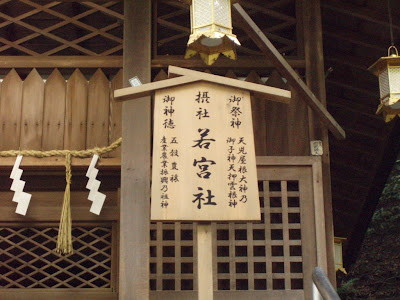 御祭神
天児屋根大神乃
御子神天押雲根神
摂社
若宮社
御神徳
五穀豊穣
産業農業振興乃祖神